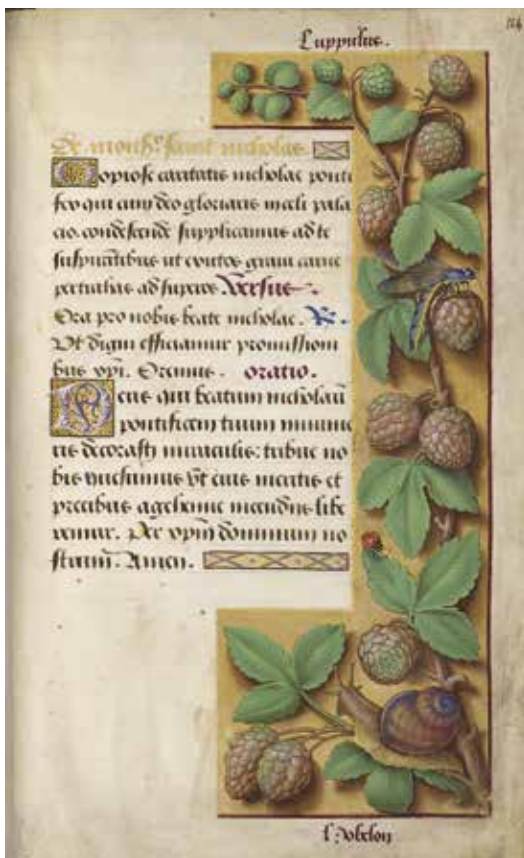 Luppulus.
De monsr. saint nicholas.
Copiose caritatis nicholae ponti
fex qui cum deo gloriaris in celi pala
cio. condescende supplicamus ad te
suspirantibus ut exutos gravi carne
pertrahas ad superos. Versus.
Ora pro nobis beate nicholae. R.
Ut digni efficiamur promissioni
bus xpi. Oremus. oratio.
Deus qui beatum nicholaū
pontificem tuum innume
ris decorasti miraculis: tribue no
bis quesumus Ut eius meritis et
precibus a gehenne incendiis libe
remur. Per xpm dominum no
strum. Amen.
l'obelon